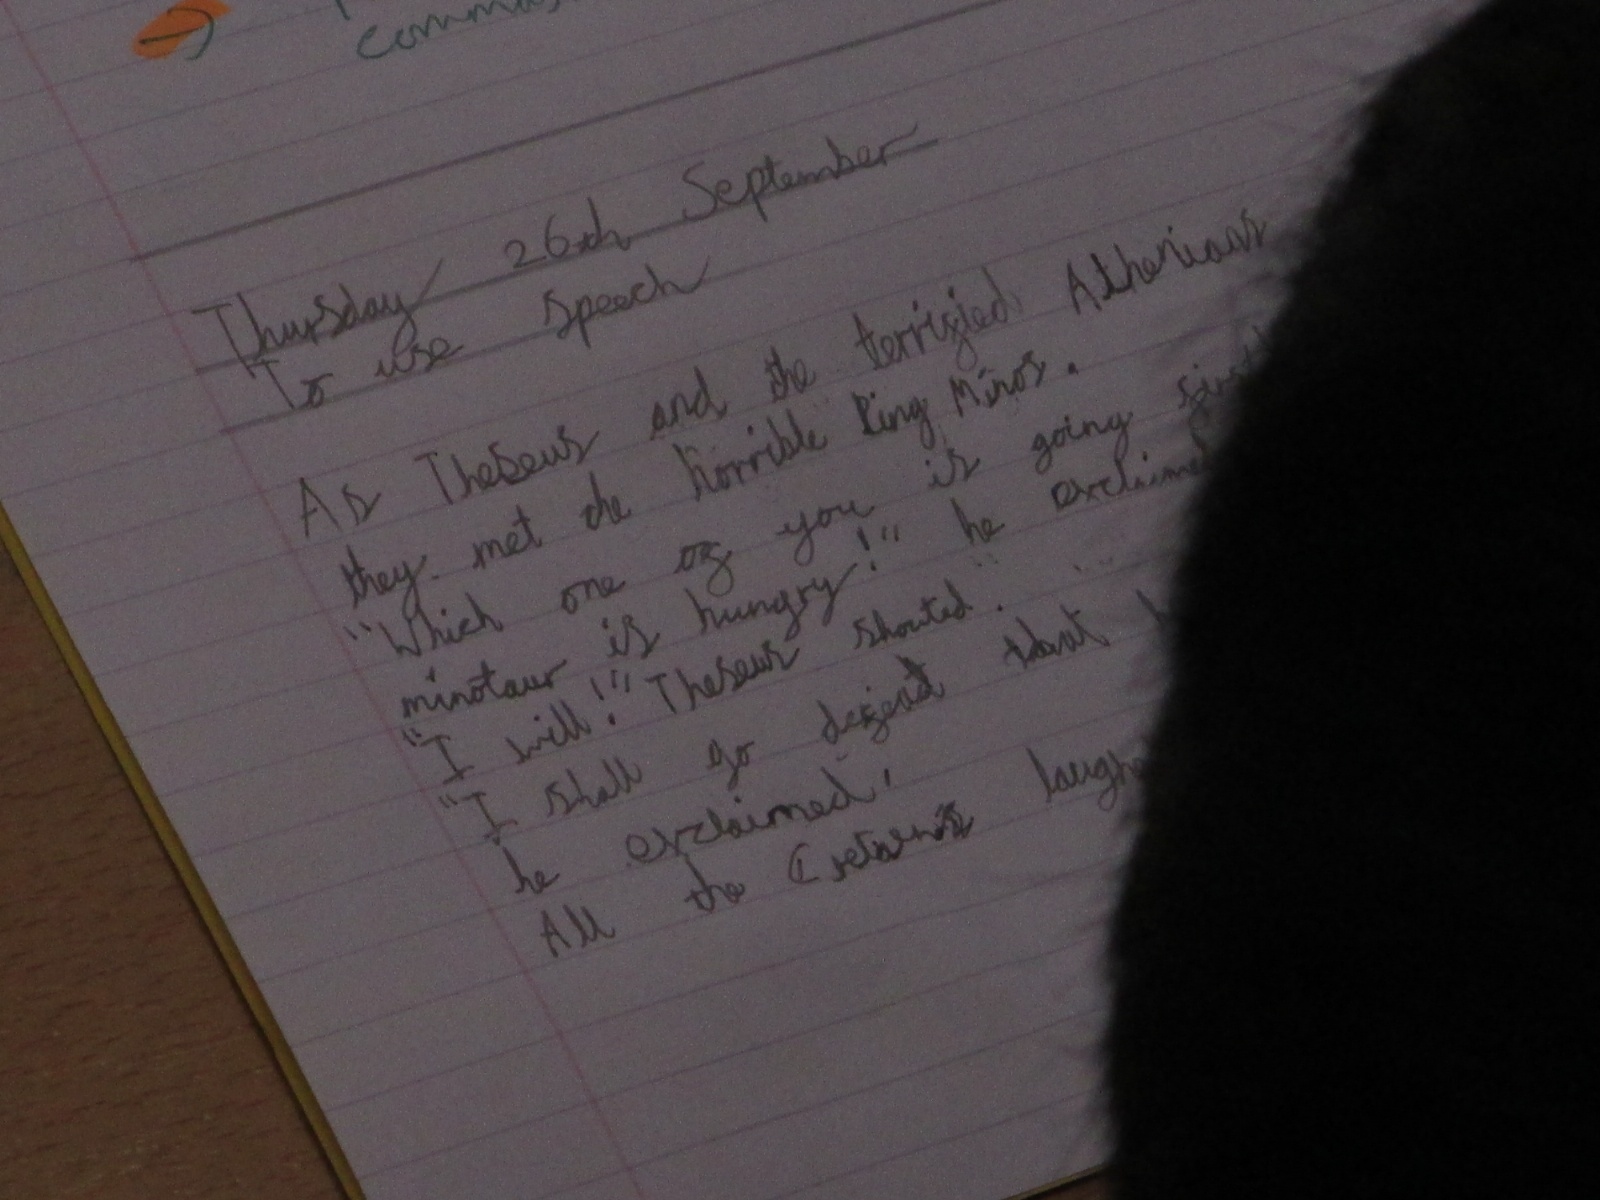 Thursday 26th September
To use speech
As Theseus and the terrified Athenians
they met the horrible King Minos.
"Which one of you is going first
minotaur is hungry!" he exclaimed
"I will!" Theseus shouted.
"I shall go defeat that
he exclaimed!
All the Cretans